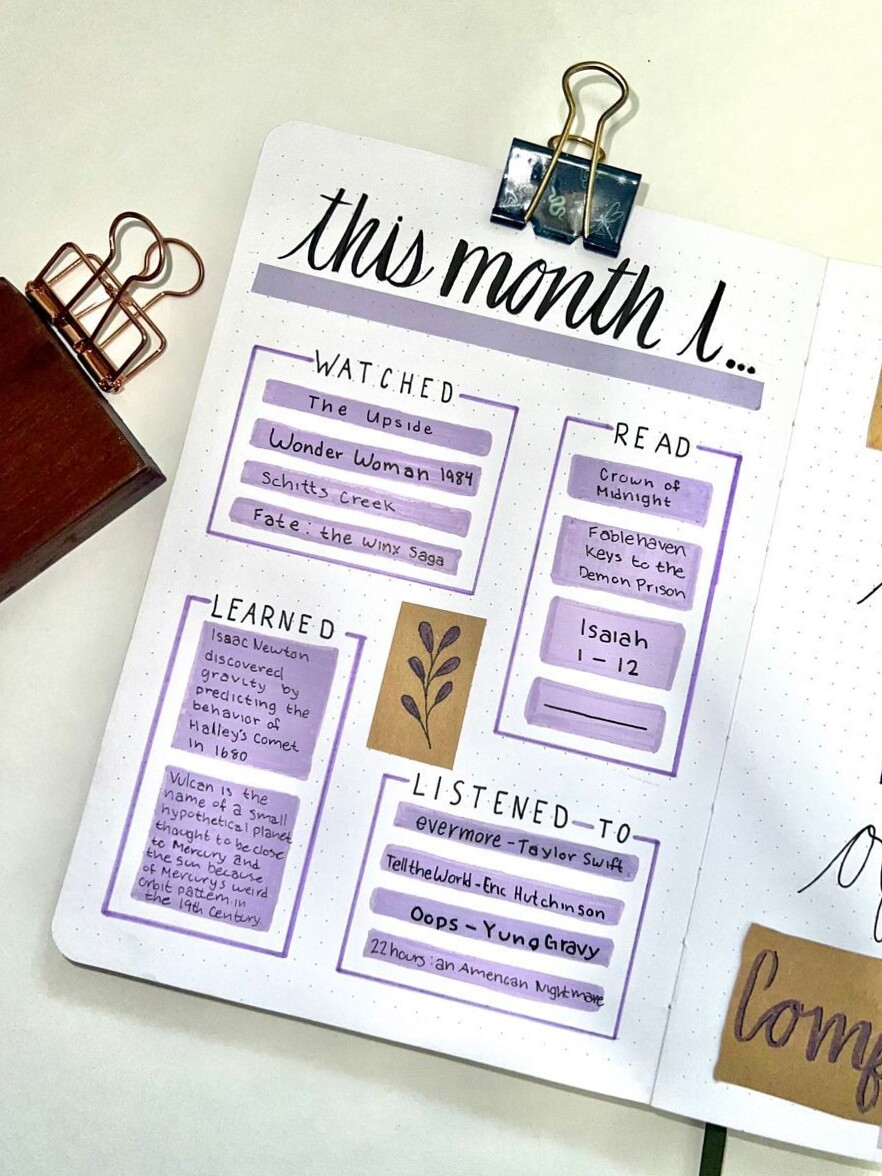 this month I...
WATCHED
The Upside
Wonder Woman 1984
Schitts Creek
Fate: the Winx Saga
READ
Crown of
Midnight
Fablehaven
Keys to the
Demon Prison
Isaiah
1 - 12
LEARNED
Isaac Newton
discovered
gravity by
predicting the
behavior of
Halley's Comet
in 1680
Vulcan is the
name of a small
hypothetical planet
thought to be close
to Mercury and
the sun because
of Mercury's weird
orbit pattern in
the 19th Century.
LISTENED-TO
evermore - Taylor Swift
Tell the World - Eric Hutchinson
Oops - Yung Gravy
22 hours: an American Nightmare